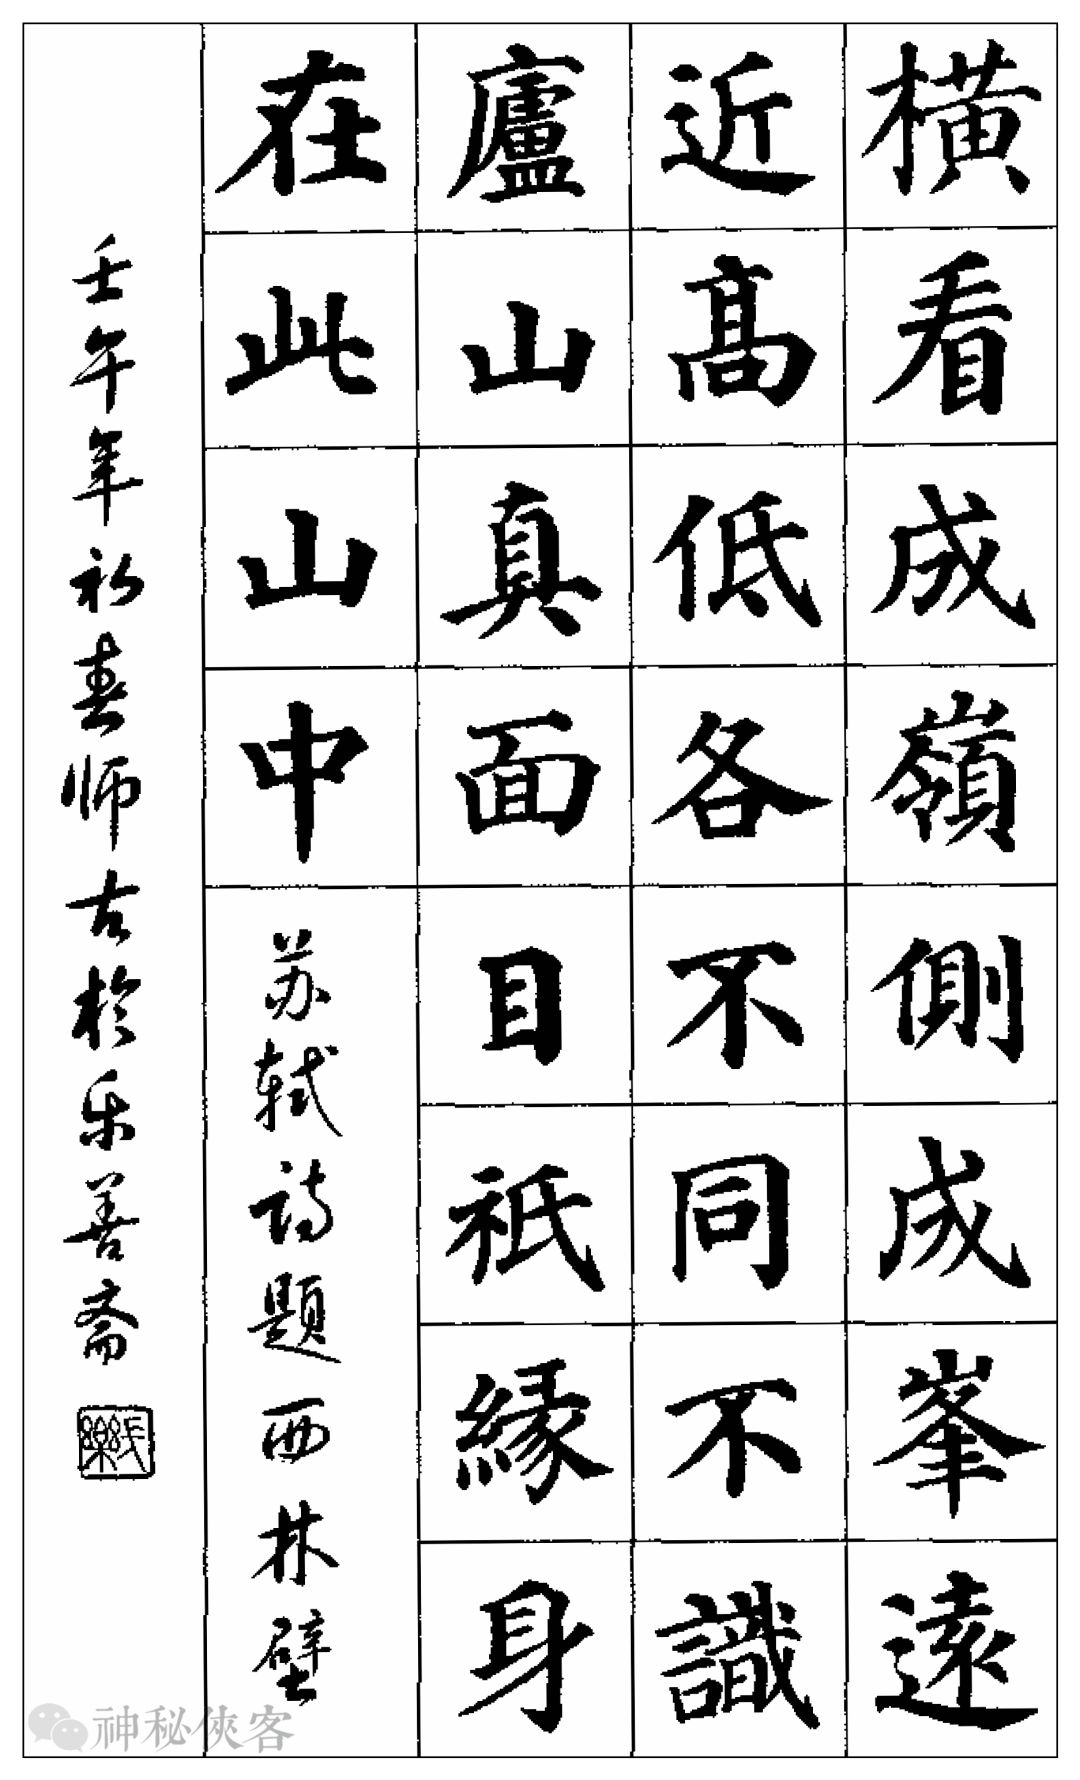 橫看成嶺側成峯遠
近高低各不同不識
廬山真面目祇緣身
在此山中
苏轼诗题西林壁
壬午年初春师古於乐善斋
神秘俠客